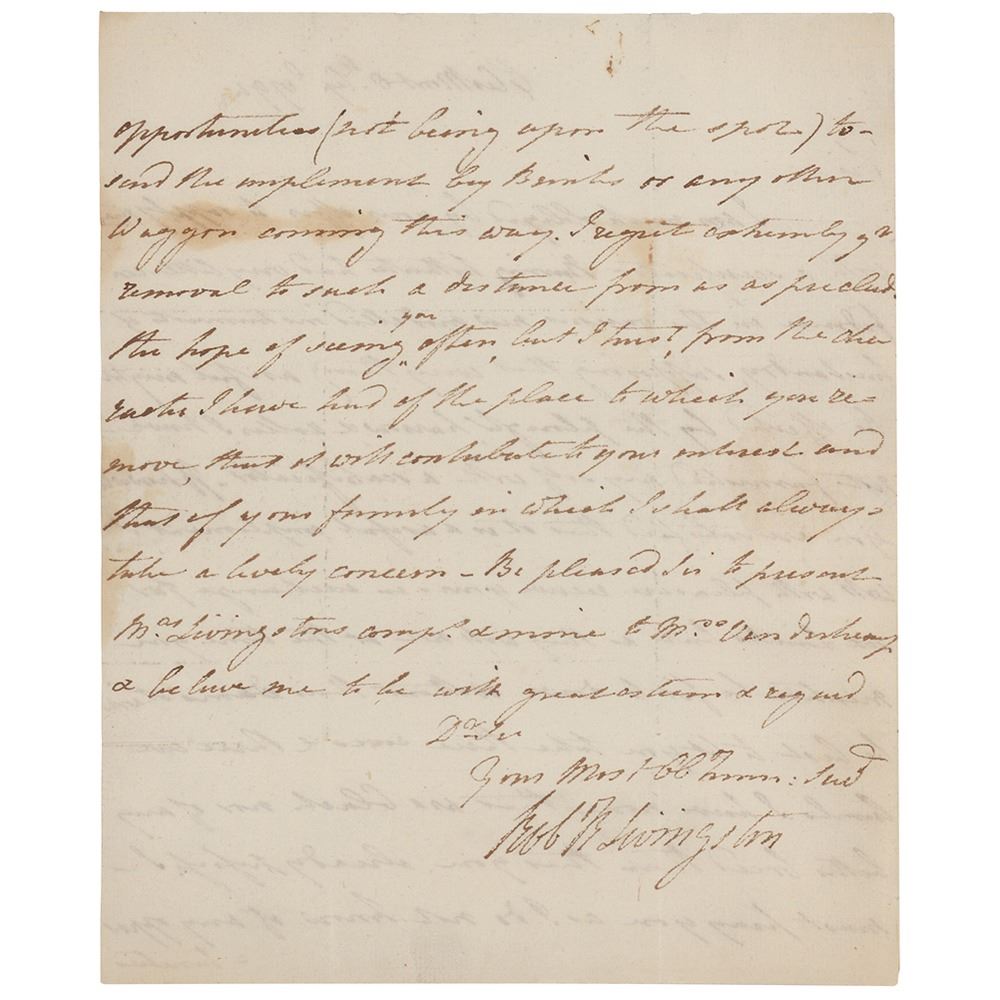 opportunities (not being upon the spot) to-
send the implement by or any other
Waggon coming this way. I regret extremly yr
removal to such a distance from us as preclud.
you
the hope of seeing often, but I trust, from the cha
racter I have had of the place to which you re=
move, that it will contribute to your interest and
that of your family in which I shall always
take a lively concern - Be pleased Sir to present
Mrs Livingstons compts & mine to Mrs Vanderkemp
& believe me to be with great esteem & regard
Dr Sir
Your Most Obt Hum: Servt
Robt R Livingston